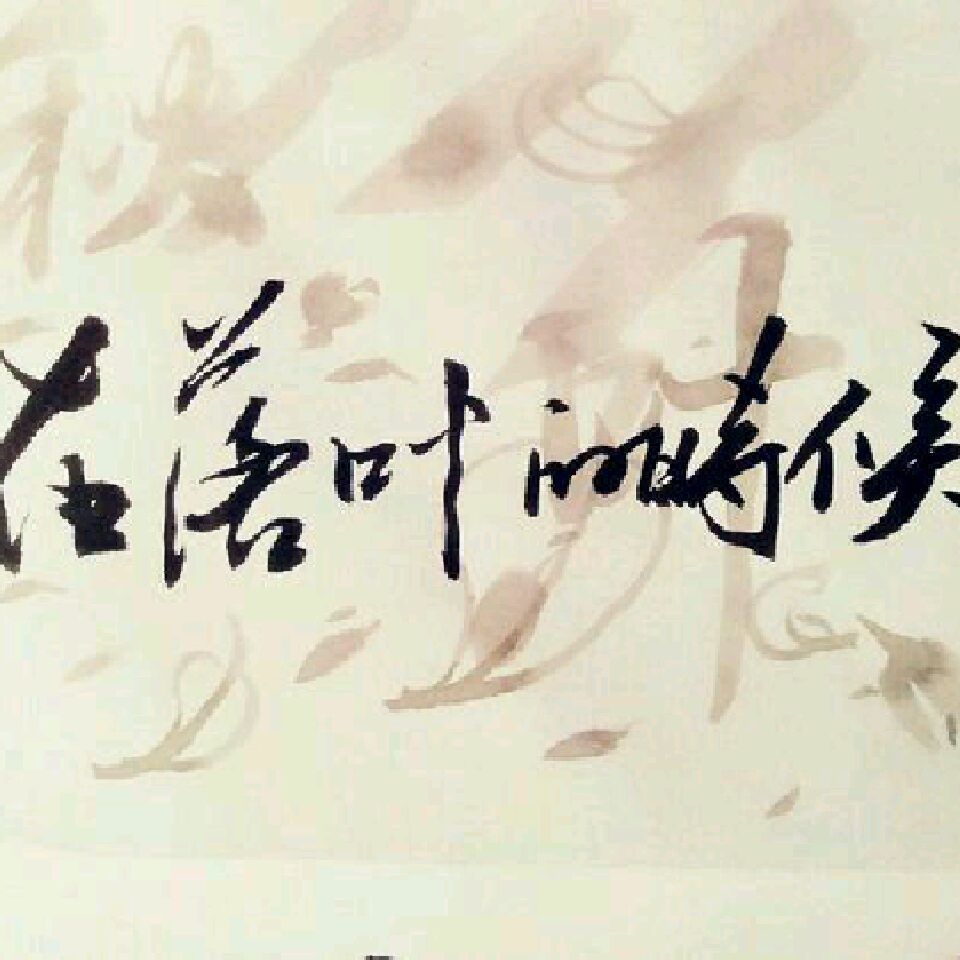 在落叶的時候